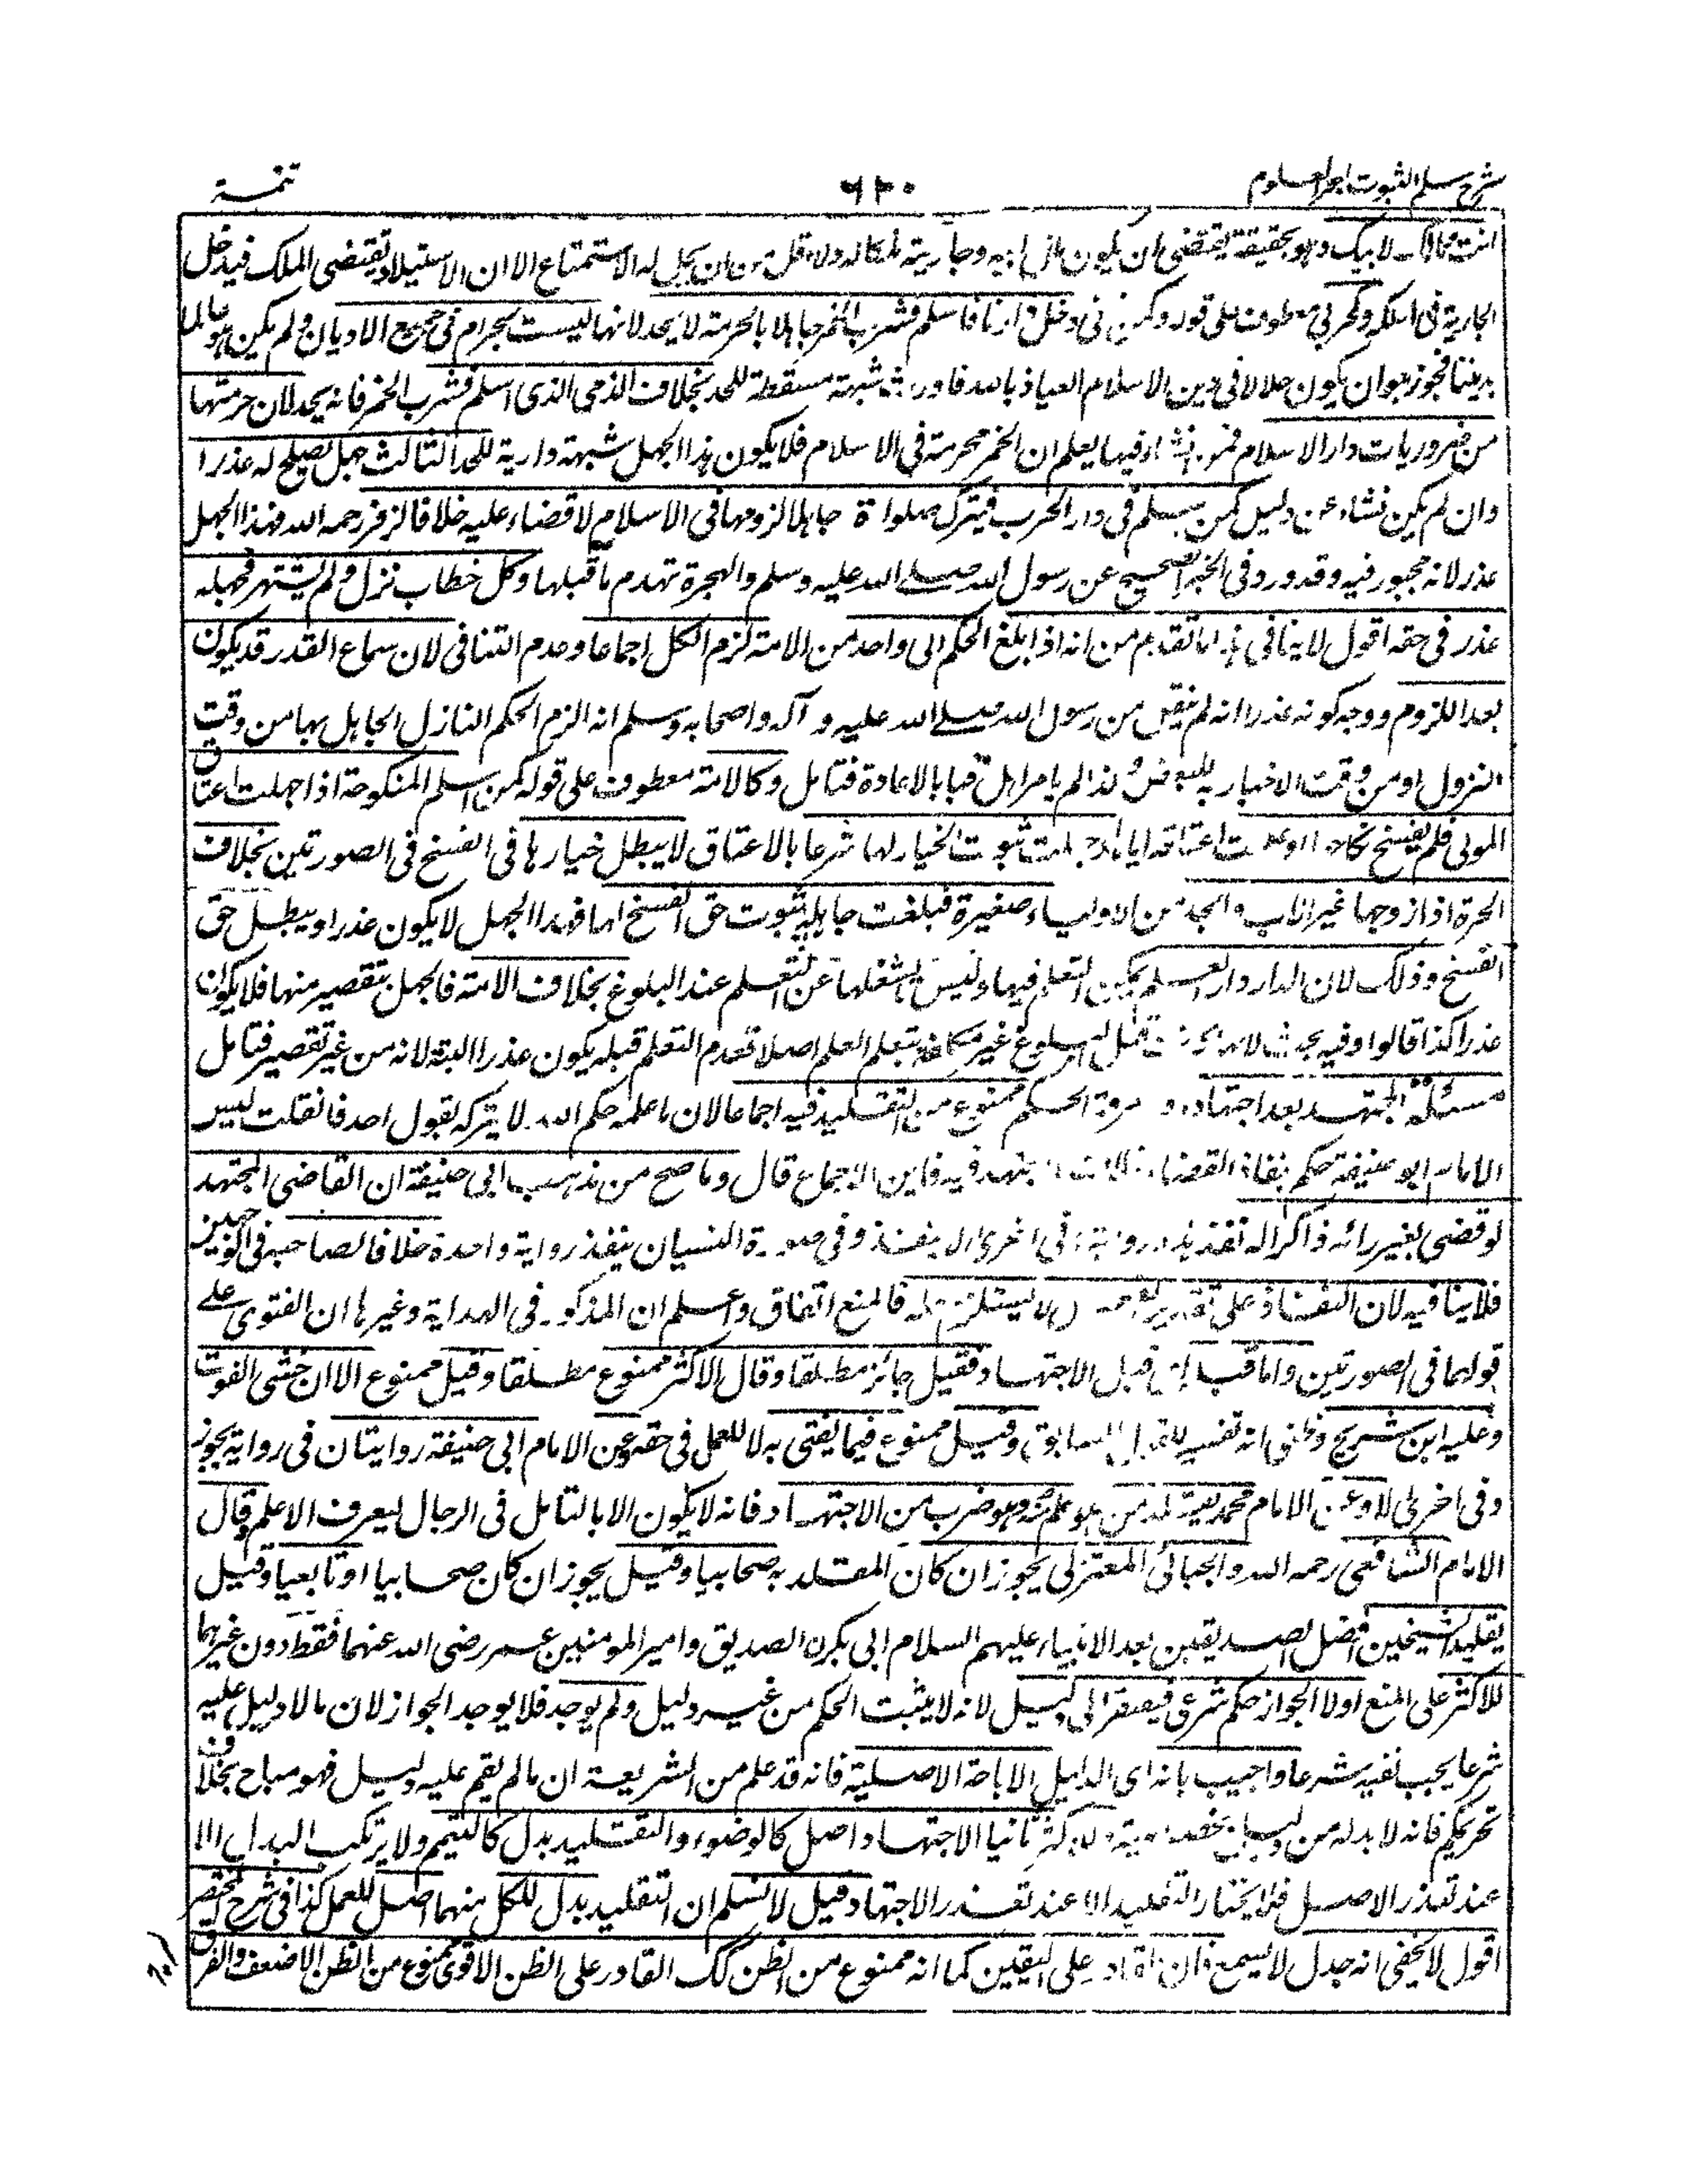 شرح سلم الثبوت لبحر العلوم
٦٢٠
تتمة
انت ومالك لابيك وهو بحقيقته يقتضى ان يكون مال ابيه وجاريته ملكا له ولا اقل من ان يحل له الاستمتاع الا ان الاستيلاد يقتضى الملك فيدخل
الجارية فى ملكه وكحربى معطوف على قوله دخل دارنا فاسلم فشرب الخمر جاهلا بالحرمة لا يحد لانها ليست بحرام فى جميع الاديان ولم يكن هو عالما
بديننا فجوز هو ان يكون حلالا فى دين الاسلام العياذ بالله فاورث شبهة مسقطة للحد بخلاف الذمى الذى اسلم فشرب الخمر فانه يحد لان حرمتها
من ضروريات دار الاسلام فمن نشاء فيها يعلم ان الخمر محرمة فى الاسلام فلا يكون هذا الجهل شبهة دارية للحد الثالث جهل يصلح له عذرا
وان لم يكن نشاء عن دليل كمن يسلم فى دار الحرب فيترك صلواة جاهلا لزومها فى الاسلام لا قضاء عليه خلافا لزفر رحمه الله فهذا الجهل
عذر لانه مجبور فيه وقد ورد فى الخبر الصحيح عن رسول الله صلى الله عليه وسلم والهجرة تهدم ما قبلها وكل خطاب نزل ولم يشتهر فجهله
عذر فى حقه اقول لا ينافى هذا ما تقدم من انه اذا بلغ الحكم الى واحد من الامة لزم الكل اجماعا وعدم التنافى لان سماع القدر قد يكون
بعد اللزوم ووجه كونه عذرا انه لم ينقل من رسول الله صلى الله عليه و آله واصحابه وسلم انه الزم الحكم النازل الجاهل بها من وقت
النزول او من وقت الاخبار به للبعض ولذا لم يامر اهل قبا بالاعادة فتامل وكالامة معطوف على قوله كمن اسلم المنكوحة اذا جهلت اعتاق
المولى فلم يفسخ نكاحه او علمت اعتاقه اياها وجهلت ثبوت الخيار لها شرعا بالاعتاق لا يبطل خيارها فى الفسخ فى الصورتين بخلاف
الحرة اذا زوجها غير الاب والجد من الاولياء صغيرة فبلغت جاهلية ثبوت حق الفسخ لها فهذا الجهل لا يكون عذرا ويبطل حق
الفسخ وذلك لان الدار دار العلم يمكن التعلم فيها وليس ما شغلها عن التعلم عند البلوغ بخلاف الامة فالجهل بتقصير منها فلا يكون
عذرا كذا قالوا وفيه بحث لانها كانت قبل البلوغ غير مكلفة بتعلم العلم اصلا فعدم التعلم قبله يكون عذرا البتة لانه من غير تقصير فتامل
مسئلة المجتهد بعد اجتهاده ومعرفة الحكم ممنوع من التقليد فيه اجماعا لان ما علمه حكم الله لا يتركه لقول احد فان قلت ليس
الامام ابو حنيفة حكم بنفاذ القضاء فيه فاين الاجماع قال وما صح من مذهب ابى حنيفة ان القاضى المجتهد
لو قضى بغير رائه ذاكرا له نفذ فى رواية وفى اخرى لا ينفذ وفى صورة النسيان ينفذ رواية واحدة خلافا لصاحبيه فى الحالين
فلا ينافيه لان النفاذ على تقدير الفعل لا يستلزم حله فالمنع اتفاق واعلم ان المذكور فى الهداية وغيرها ان الفتوى على
قولهما فى الصورتين واما قبله اى قبل الاجتهاد فقيل جائز مطلقا وقال الاكثر ممنوع مطلقا وقيل ممنوع الا ان خشى الفوت
وعليه ابن شريح وظنى انه تفسير للقول السابق وقيل ممنوع فيما يفتى به لا للعمل فى حقه وعن الامام ابى حنيفة روايتان فى رواية يجوز
وفى اخرى لا وعن الامام محمد يقلد من هو اعلم منه وهو ضرب من الاجتهاد فانه لا يكون الا بالتامل فى الرجال ليعرف الاعلم وقال
الامام الشافعى رحمه الله والجبائى المعتزلى يجوز ان كان المقلد به صحابيا وقيل يجوز ان كان صحابيا او تابعيا وقيل
يقلد الشيخين افضل الصديقين بعد الانبياء عليهم السلام ابى بكر ن الصديق وامير المومنين عمر رضى الله عنهما فقط دون غيرهما
للاكثر على المنع اولا الجواز حكم شرعى فيفتقر الى دليل لانه لا يثبت الحكم من غير دليل ولم يوجد فلا يوجد الجواز لان ما لا دليل عليه
شرعا يجب نفيه شرعا واجيب بانه اى الدليل الاباحة الاصلية فانه قد علم من الشريعة ان ما لم يقم عليه دليل فهو مباح بخلاف
تحريمكم فانه لا بد له من دليل للاكثر ثانيا الاجتهاد اصل كالوضوء والتقليد بدل كالتيمم ولا يرتكب البدل الا
عند تعذر الاصل فلا يختار التقليد الا عند تعذر الاجتهاد وقيل لا نسلم ان التقليد بدل للكل منهما اصل للعمل كذا فى شرح المختصر
اقول لا يخفى انه جدل لا يسمع فان القادر على اليقين كما انه ممنوع من الظن كك القادر على الظن الاقوى ممنوع من الظن الاضعف والفرق